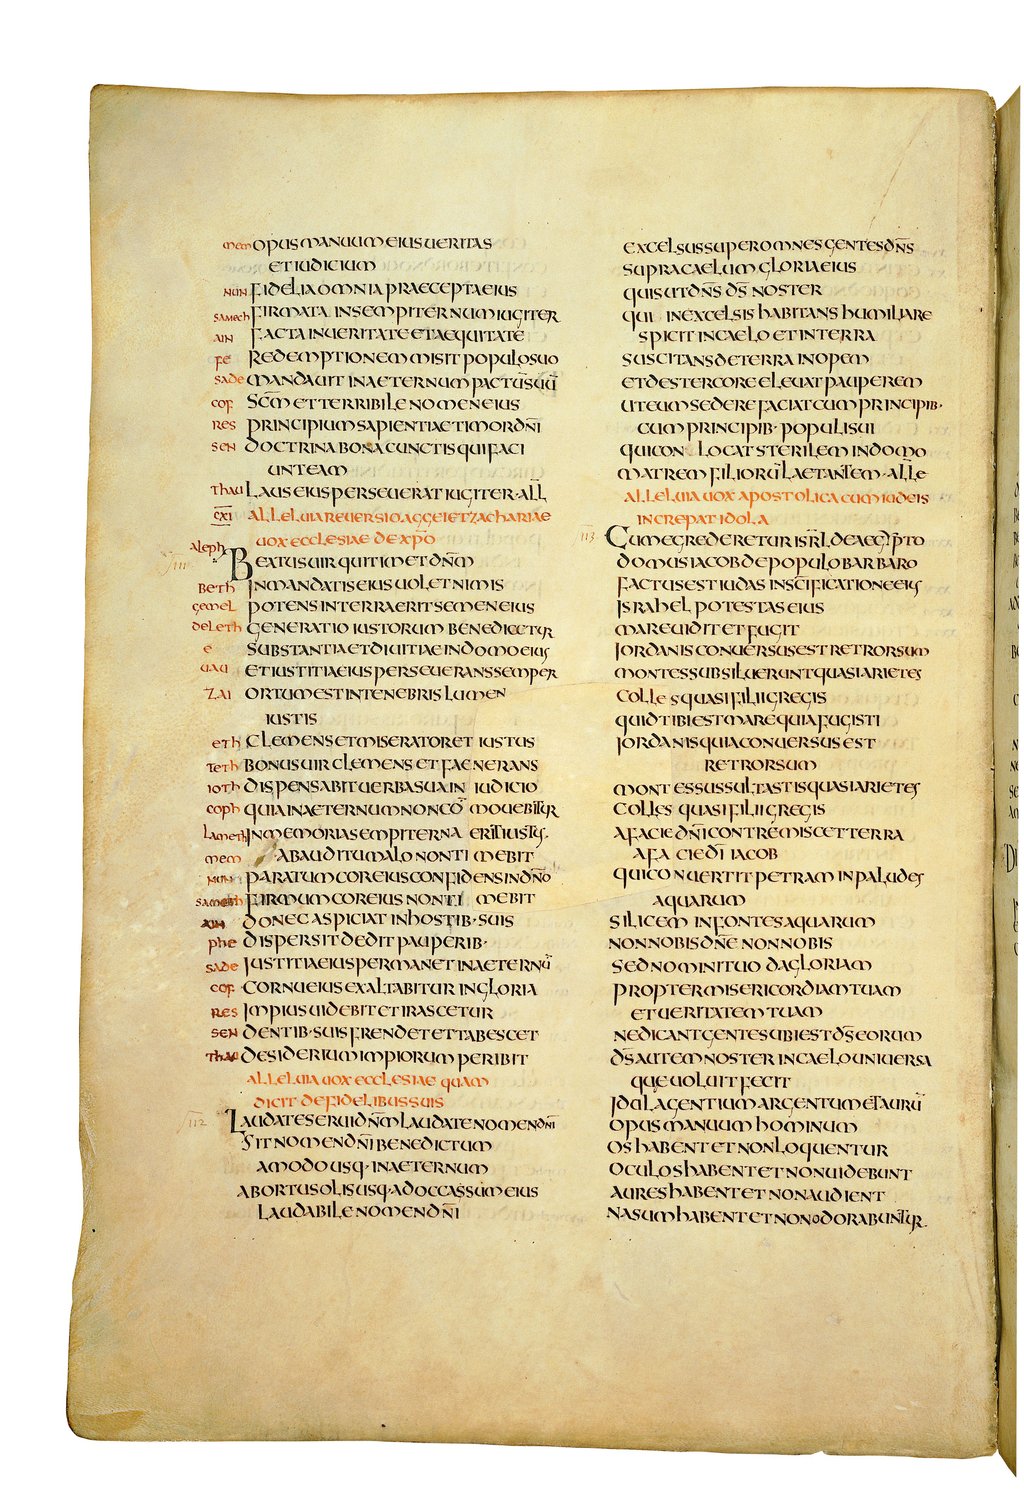 mem OPUS MANUUM EIUS UERITAS
ET IUDICIUM
NUN FIDELIA OMNIA PRAECEPTA EIUS
SAMECH FIRMATA IN SEMPITERNUM IUGITER
AIN FACTA IN UERITATE ET AEQUITATE
FE REDEMPTIONEM MISIT POPULO SUO
SADE MANDAUIT IN AETERNUM PACTUM SUŪ
COF SC̄M ET TERRIBILE NOMEN EIUS
RES PRINCIPIUM SAPIENTIAE TIMOR DN̄I
SEN DOCTRINA BONA CUNCTIS QUI FACI
UNT EAM
THAU LAUS EIUS PERSEUERAT IUGITER · ALL̄
CXI ALLELUIA REUERSIO AGGEI ET ZACHARIAE
UOX ECCLESIAE DE XP̄O
ALEPH BEATUS UIR QUI TIMET DN̄M
111
BETH IN MANDATIS EIUS UOLET NIMIS
GEMEL POTENS IN TERRA ERIT SEMEN EIUS
DELETH GENERATIO IUSTORUM BENEDICETUR
E SUBSTANTIA ET DIUITIAE IN DOMO EIUS
UAU ET IUSTITIA EIUS PERSEUERANS SEMPER
ZAI ORTUM EST IN TENEBRIS LUMEN
IUSTIS
ETH CLEMENS ET MISERATOR ET IUSTUS
TETH BONUS UIR CLEMENS ET FAENERANS
IOTH DISPENSABIT UERBA SUA IN IUDICIO
COPH QUIA IN AETERNUM NON CŌMOUEBITUR
LAMETH IN MEMORIA SEMPITERNA ERIT IUSTUS ·
MEM AB AUDITU MALO NON TIMEBIT
NUN PARATUM COR EIUS CONFIDENS IN DN̄O
SAMETH FIRMUM COR EIUS NON TIMEBIT
AIN DONEC ASPICIAT IN HOSTIB · SUIS
PHE DISPERSIT DEDIT PAUPERIB ·
SADE IUSTITIA EIUS PERMANET IN AETERNŪ
COF CORNU EIUS EXALTABITUR IN GLORIA
RES IMPIUS UIDEBIT ET IRASCETUR
SEN DENTIB · SUIS FRENDET ET TABESCET
THAU DESIDERIUM IMPIORUM PERIBIT
ALLELUIA UOX ECCLESIAE QUAM
DICIT DE FIDELIBUS SUIS
112 LAUDATE SERUI DN̄M LAUDATE NOMEN DN̄I
SIT NOMEN DN̄I BENEDICTUM
AMODO USQ · IN AETERNUM
AB ORTU SOLIS USQ · AD OCCASSUM EIUS
LAUDABILE NOMEN DN̄I
EXCELSUS SUPER OMNES GENTES DN̄S
SUPRA CAELUM GLORIA EIUS
QUIS UT DN̄S DS̄ NOSTER
QUI IN EXCELSIS HABITANS HUMILIA RE
SPICIT IN CAELO ET IN TERRA
SUSCITANS DE TERRA INOPEM
ET DE STERCORE ELEUAT PAUPEREM
UT EUM SEDERE FACIAT CUM PRINCIPIB ·
CUM PRINCIPIB · POPULI SUI
QUI CONLOCAT STERILEM IN DOMO
MATREM FILIORŪ LAETANTEM · ALL̄E
ALLELUIA UOX APOSTOLICA CUM IUDEIS
INCREPAT IDOLA
113 CUM EGREDERETUR ISR̄L DE AEGYPTO
DOMUS IACOB DE POPULO BARBARO
FACTUS EST IUDAS IN SC̄IFICATIONE EIUS
ISRAHEL POTESTAS EIUS
MARE UIDIT ET FUGIT
IORDANIS CONUERSUS EST RETRORSUM
MONTES SUBSILUERUNT QUASI ARIETES
COLLES QUASI FILII GREGIS
QUID TIBI EST MARE QUIA FUGISTI
IORDANIS QUIA CONUERSUS EST
RETRORSUM
MONTES SUSSULTASTIS QUASI ARIETES
COLLES QUASI FILII GREGIS
A FACIE DN̄I CONTREMISCE TERRA
A FACIE DĪ IACOB
QUI CONUERTIT PETRAM IN PALUDES
AQUARUM
SILICEM IN FONTES AQUARUM
NON NOBIS DN̄E NON NOBIS
SED NOMINI TUO DA GLORIAM
PROPTER MISERICORDIAM TUAM
ET UERITATEM TUAM
NE DICANT GENTES UBI EST DS̄ EORUM
DS̄ AUTEM NOSTER IN CAELO UNIUERSA
QUE UOLUIT FECIT
IDOLA GENTIUM ARGENTUM ET AURŪ
OPUS MANUUM HOMINUM
OS HABENT ET NON LOQUENTUR
OCULOS HABENT ET NON UIDEBUNT
AURES HABENT ET NON AUDIENT
NASUM HABENT ET NON ODORABUNTUR